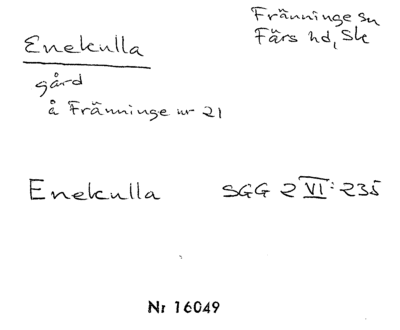 Fränninge sn
Färs hd, Sk
Enekulla
gård
å Fränninge nr 21
Enekulla SGG 2 VI: 235
Nr 16049